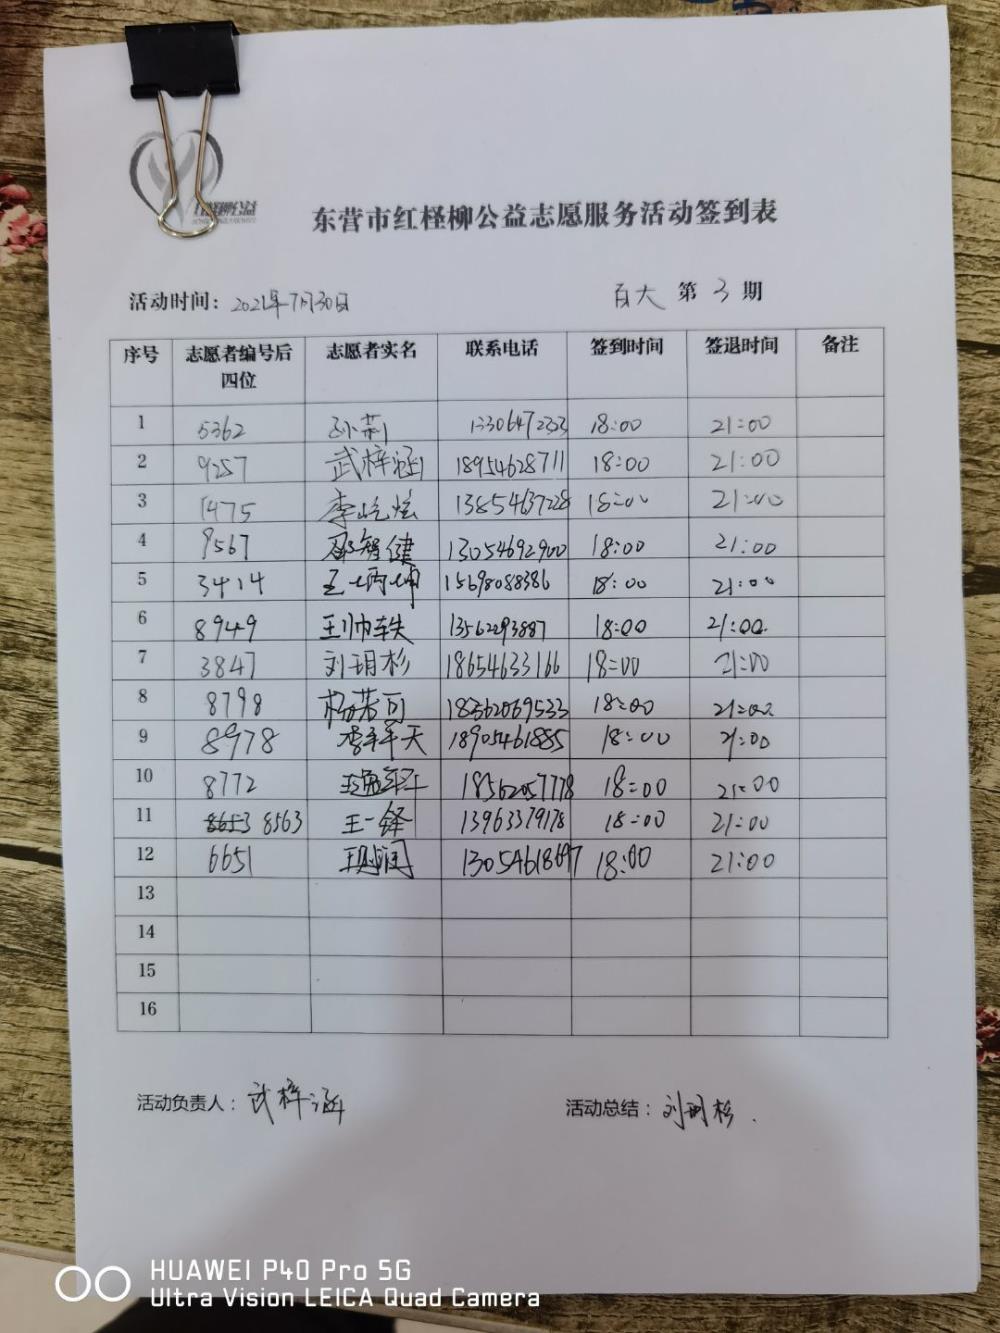 红柽柳公益
东营市红柽柳公益志愿服务活动签到表
活动时间：2021年7月30日 百大 第 3 期
序号 志愿者编号后四位 志愿者实名 联系电话 签到时间 签退时间 备注
1 5362 孙莉 18:00 21:00
2 9257 武梓涵 18954628711 18:00 21:00
3 1475 李屹炫 13854637228 18:00 21:00
4 9567 邵智健 13054692900 18:00 21:00
5 3414 王炳坤 15698088386 18:00 21:00
6 8949 王帅轶 13562293887 18:00 21:00
7 3847 刘玥杉 18654633166 18:00 21:00
8 8798 杨若可 18362069533 18:00 21:00
9 8978 天 18905461885 18:00 21:00
10 8772 18562057778 18:00 21:00
11 8653 8563 王一铎 13963379178 18:00 21:00
12 6651 13054618697 18:00 21:00
13
14
15
16
活动负责人：武梓涵 活动总结：刘玥杉.
HUAWEI P40 Pro 5G
Ultra Vision LEICA Quad Camera